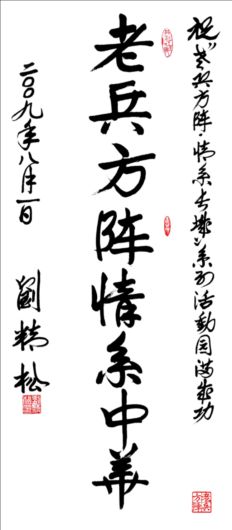 祝"老兵方阵·情系长城"系列活动圆满成功
老兵方阵情系中华
二〇〇九年八月一日
劉精松